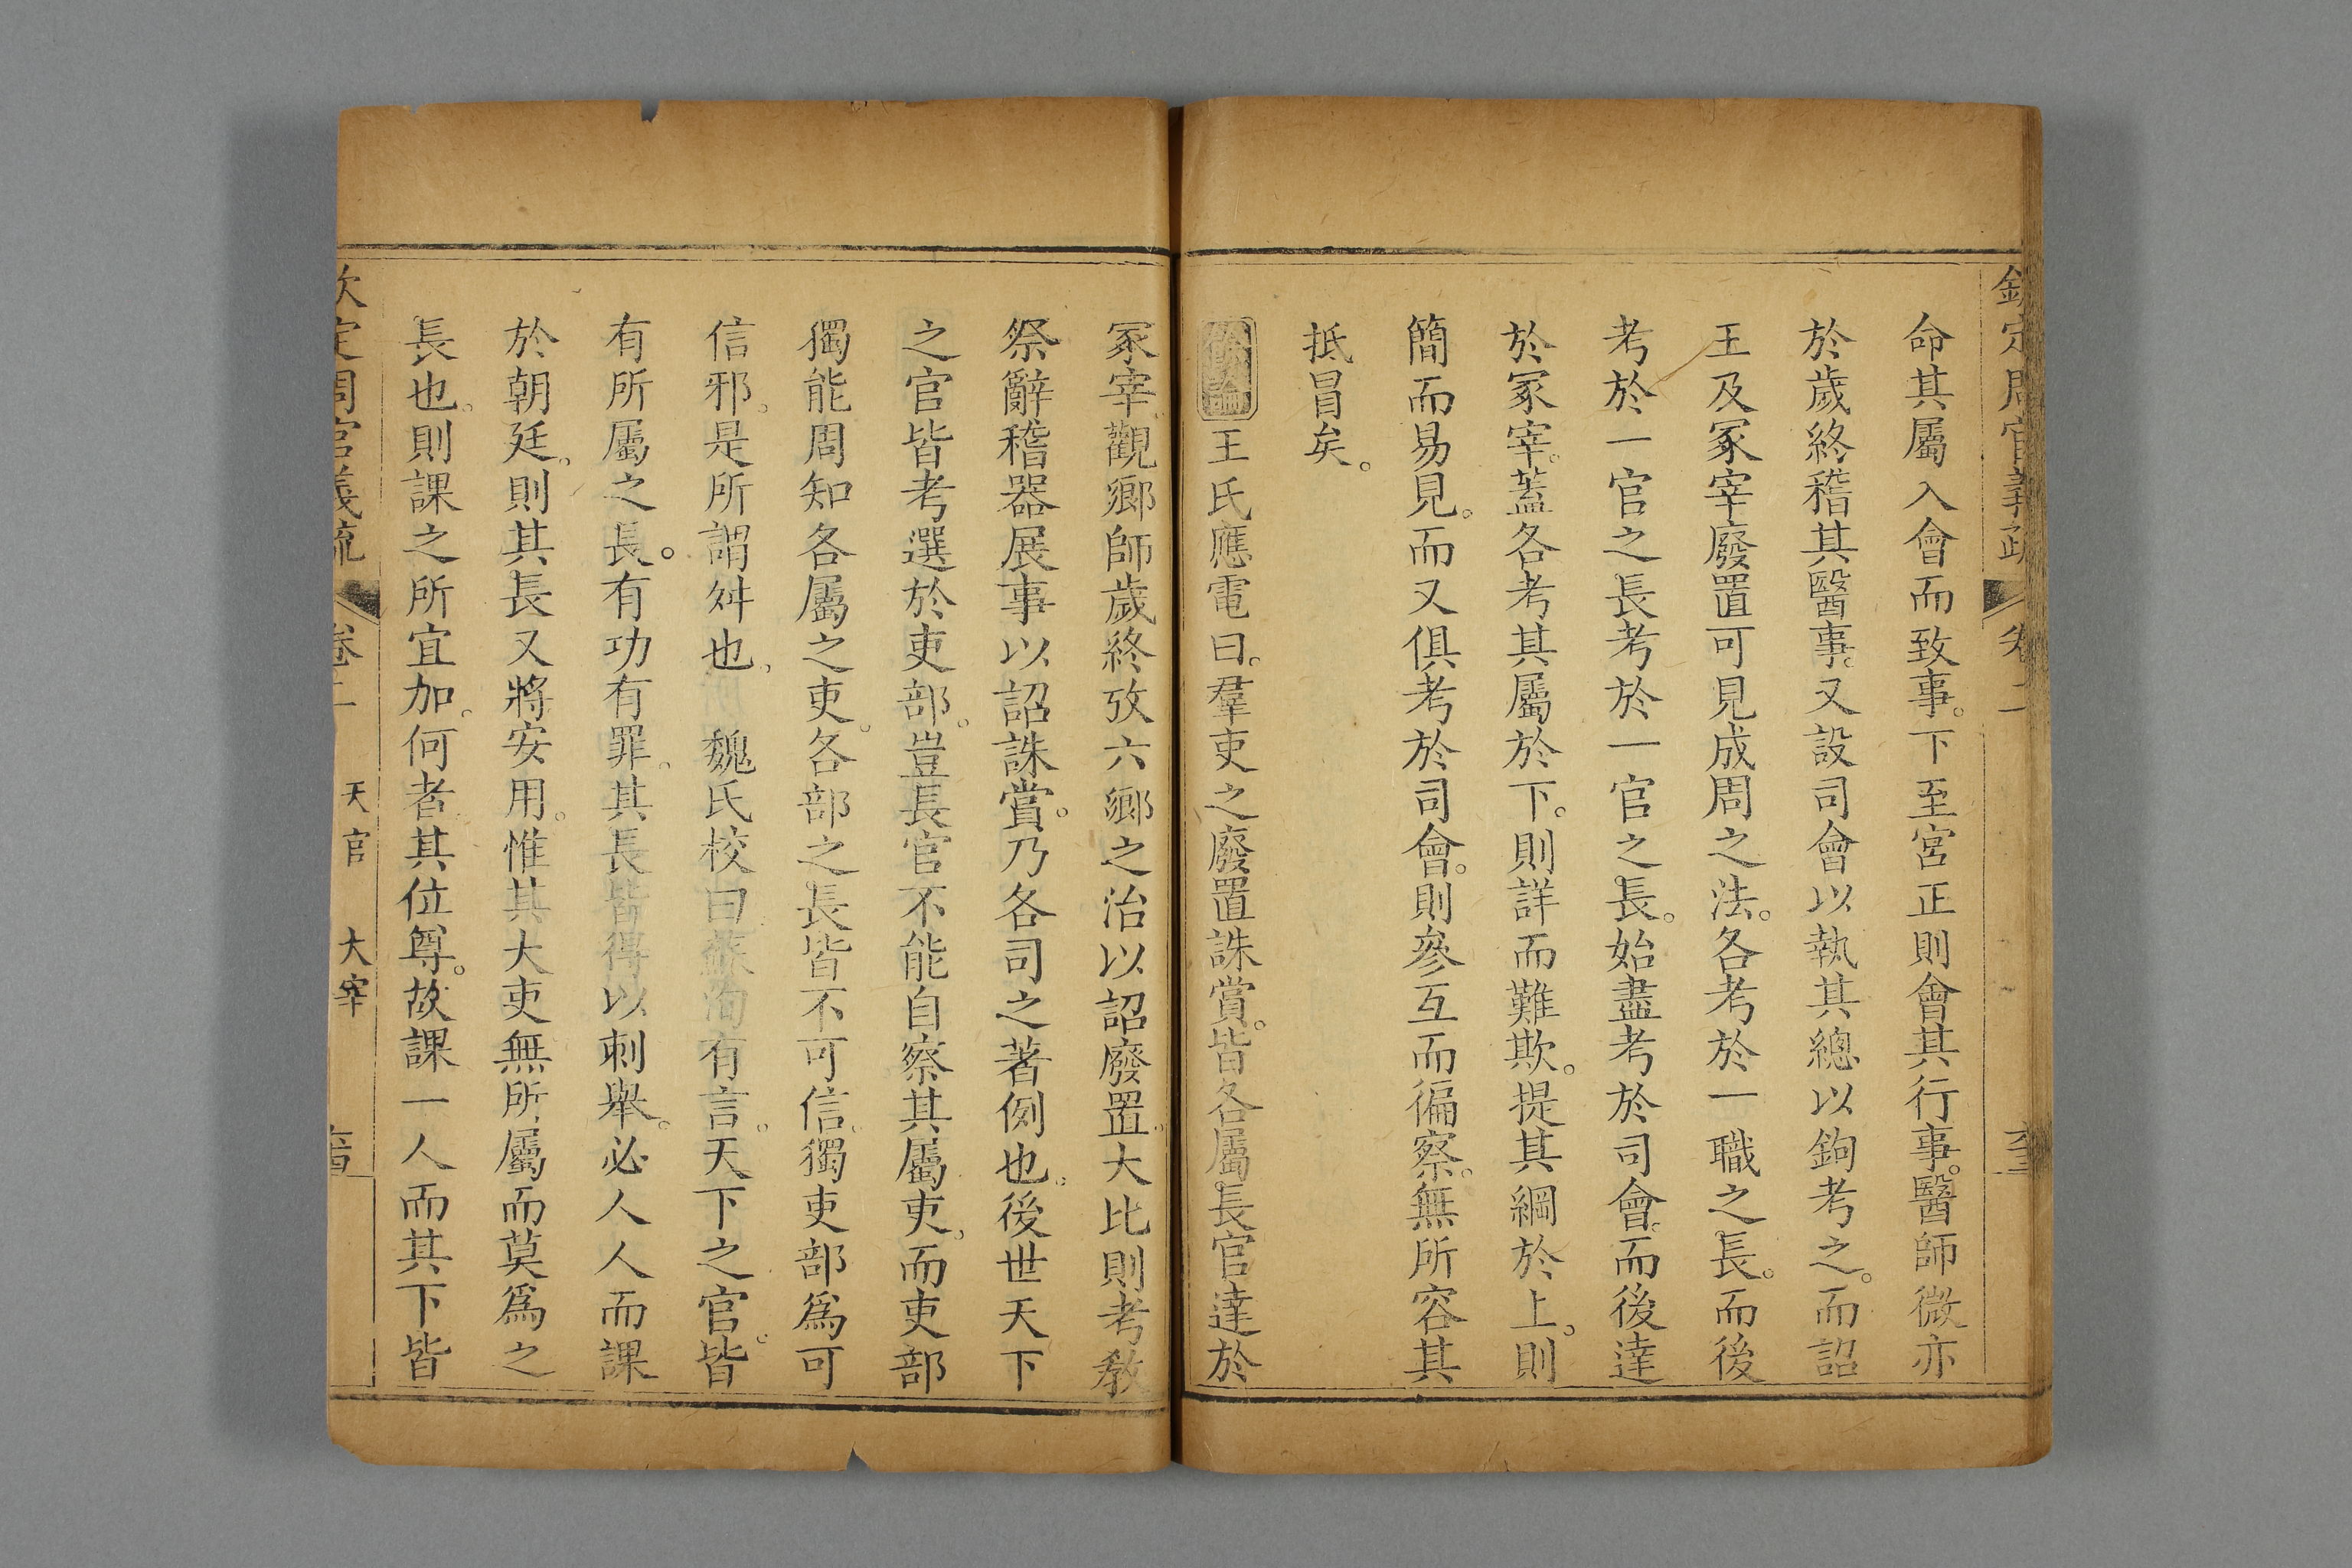 欽定周官義疏 卷二
命其屬入會而致事。下至宮正則會其行事。醫師微亦
於歲終稽其醫事。又設司會以執其總以鉤考之。而詔
王及冢宰廢置可見成周之法。各考於一職之長。而後
考於一官之長考於一官之長。始盡考於司會。而後達
於冢宰。蓋各考其屬於下。則詳而難欺。提其綱於上。則
簡而易見。而又俱考於司會。則參互而徧察。無所容其
抵冒矣。
餘論王氏應電曰。羣吏之廢置誅賞。皆各屬長官達於
冢宰。觀鄉師歲終攷六鄉之治以詔廢置。大比則考教
祭辭稽器展事以詔誅賞。乃各司之著例也。後世天下
之官皆考選於吏部。豈長官不能自察其屬吏。而吏部
獨能周知各屬之吏。各部之長皆不可信。獨吏部為可
信邪。是所謂舛也。 魏氏校曰蘇洵有言。天下之官。皆
有所屬之長。有功有罪。其長皆得以刺舉。必人人而課
於朝廷。則其長又將安用。惟其大吏無所屬而莫爲之
長也。則課之所宜加。何者其位尊。故課一人而其下皆
欽定周官義疏 卷二 天官 大宰